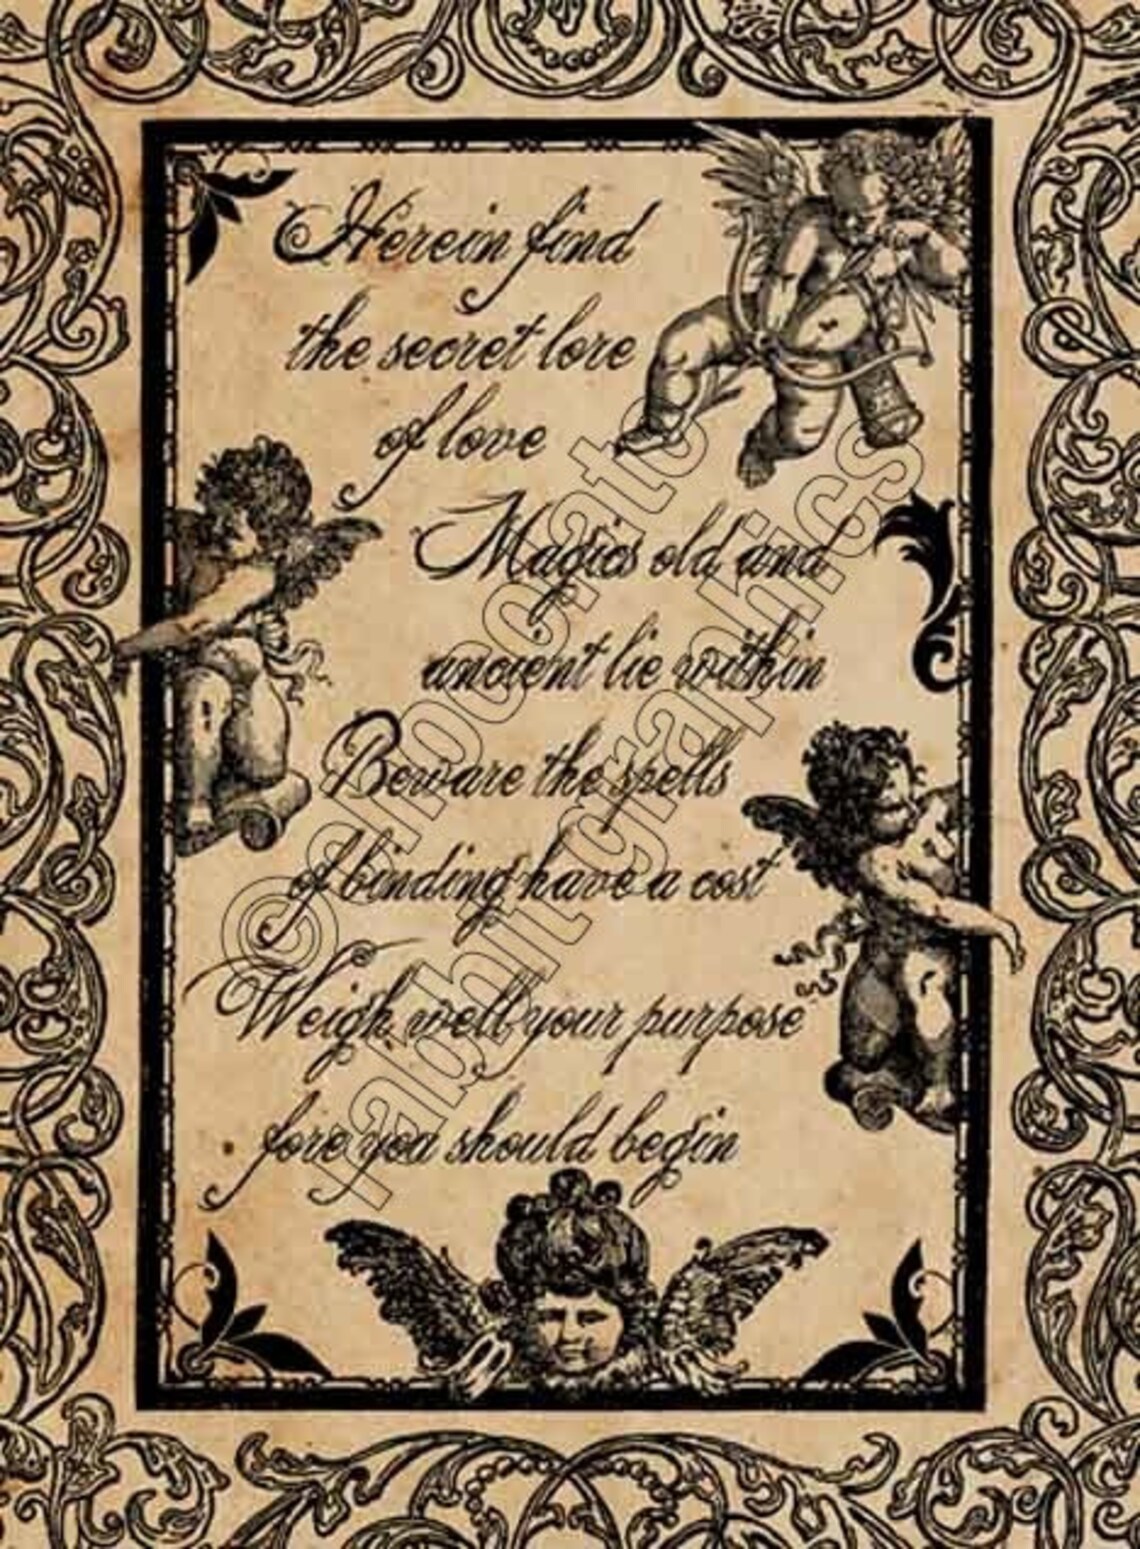 Herein find
the secret lore
of love
Magics old and
ancient lie within
Beware the spells
of binding have a cost
Weigh well your purpose
fore you should begin
© chocolate
rabbit graphics